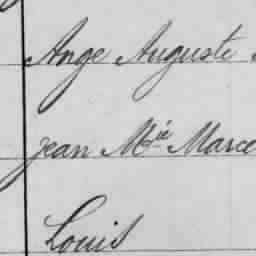 Ange Auguste
jean M^ie Marce
Louis